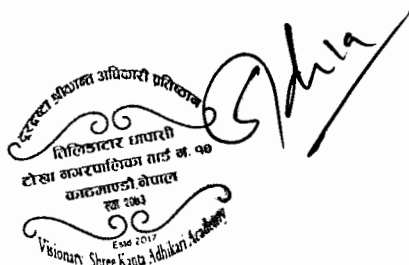 दूरद्रष्टा श्रीकान्त अधिकारी प्रतिष्ठान
तिलिङटार धापासी
टोखा नगरपालिका वार्ड नं. १०
काठमाण्डौ,नेपाल
Estd 2017
Visionary Shree Kanta Adhikari Academy